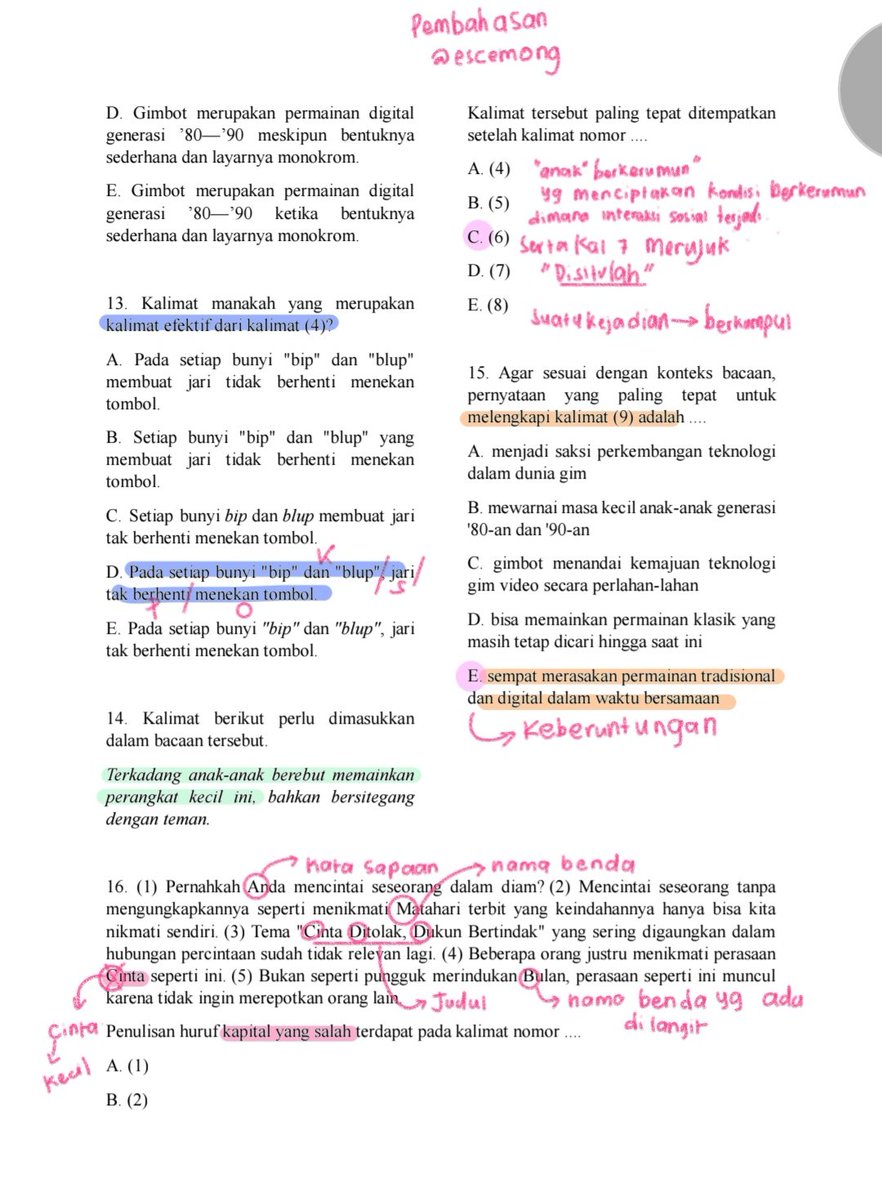 Pembahasan
@escemong
D. Gimbot merupakan permainan digital
generasi ’80—’90 meskipun bentuknya
sederhana dan layarnya monokrom.
E. Gimbot merupakan permainan digital
generasi ’80—’90 ketika bentuknya
sederhana dan layarnya monokrom.
13. Kalimat manakah yang merupakan
kalimat efektif dari kalimat (4)?
A. Pada setiap bunyi "bip" dan "blup"
membuat jari tidak berhenti menekan
tombol.
B. Setiap bunyi "bip" dan "blup" yang
membuat jari tidak berhenti menekan
tombol.
C. Setiap bunyi bip dan blup membuat jari
tak berhenti menekan tombol.
K
D. Pada setiap bunyi "bip" dan "blup", jari
S
tak berhenti menekan tombol.
P
O
E. Pada setiap bunyi "bip" dan "blup", jari
tak berhenti menekan tombol.
14. Kalimat berikut perlu dimasukkan
dalam bacaan tersebut.
Terkadang anak-anak berebut memainkan
perangkat kecil ini, bahkan bersitegang
dengan teman.
Kalimat tersebut paling tepat ditempatkan
setelah kalimat nomor ....
A. (4)
"anak" berkerumun"
yg menciptakan kondisi berkerumun
B. (5)
dimana interaksi sosial terjadi.
C. (6)
Serta Kal 7 merujuk
D. (7)
"Disitulah"
E. (8)
Suatu kejadian → berkumpul
15. Agar sesuai dengan konteks bacaan,
pernyataan yang paling tepat untuk
melengkapi kalimat (9) adalah ....
A. menjadi saksi perkembangan teknologi
dalam dunia gim
B. mewarnai masa kecil anak-anak generasi
'80-an dan '90-an
C. gimbot menandai kemajuan teknologi
gim video secara perlahan-lahan
D. bisa memainkan permainan klasik yang
masih tetap dicari hingga saat ini
E. sempat merasakan permainan tradisional
dan digital dalam waktu bersamaan
Keberuntungan
kata sapaan
nama benda
16. (1) Pernahkah Anda mencintai seseorang dalam diam? (2) Mencintai seseorang tanpa
mengungkapkannya seperti menikmati Matahari terbit yang keindahannya hanya bisa kita
nikmati sendiri. (3) Tema "Cinta Ditolak, Dukun Bertindak" yang sering digaungkan dalam
hubungan percintaan sudah tidak relevan lagi. (4) Beberapa orang justru menikmati perasaan
Cinta seperti ini. (5) Bukan seperti pungguk merindukan Bulan, perasaan seperti ini muncul
karena tidak ingin merepotkan orang lain.
Judul
nama benda yg ada
di langit
Cinta
kecil
Penulisan huruf kapital yang salah terdapat pada kalimat nomor ....
A. (1)
B. (2)